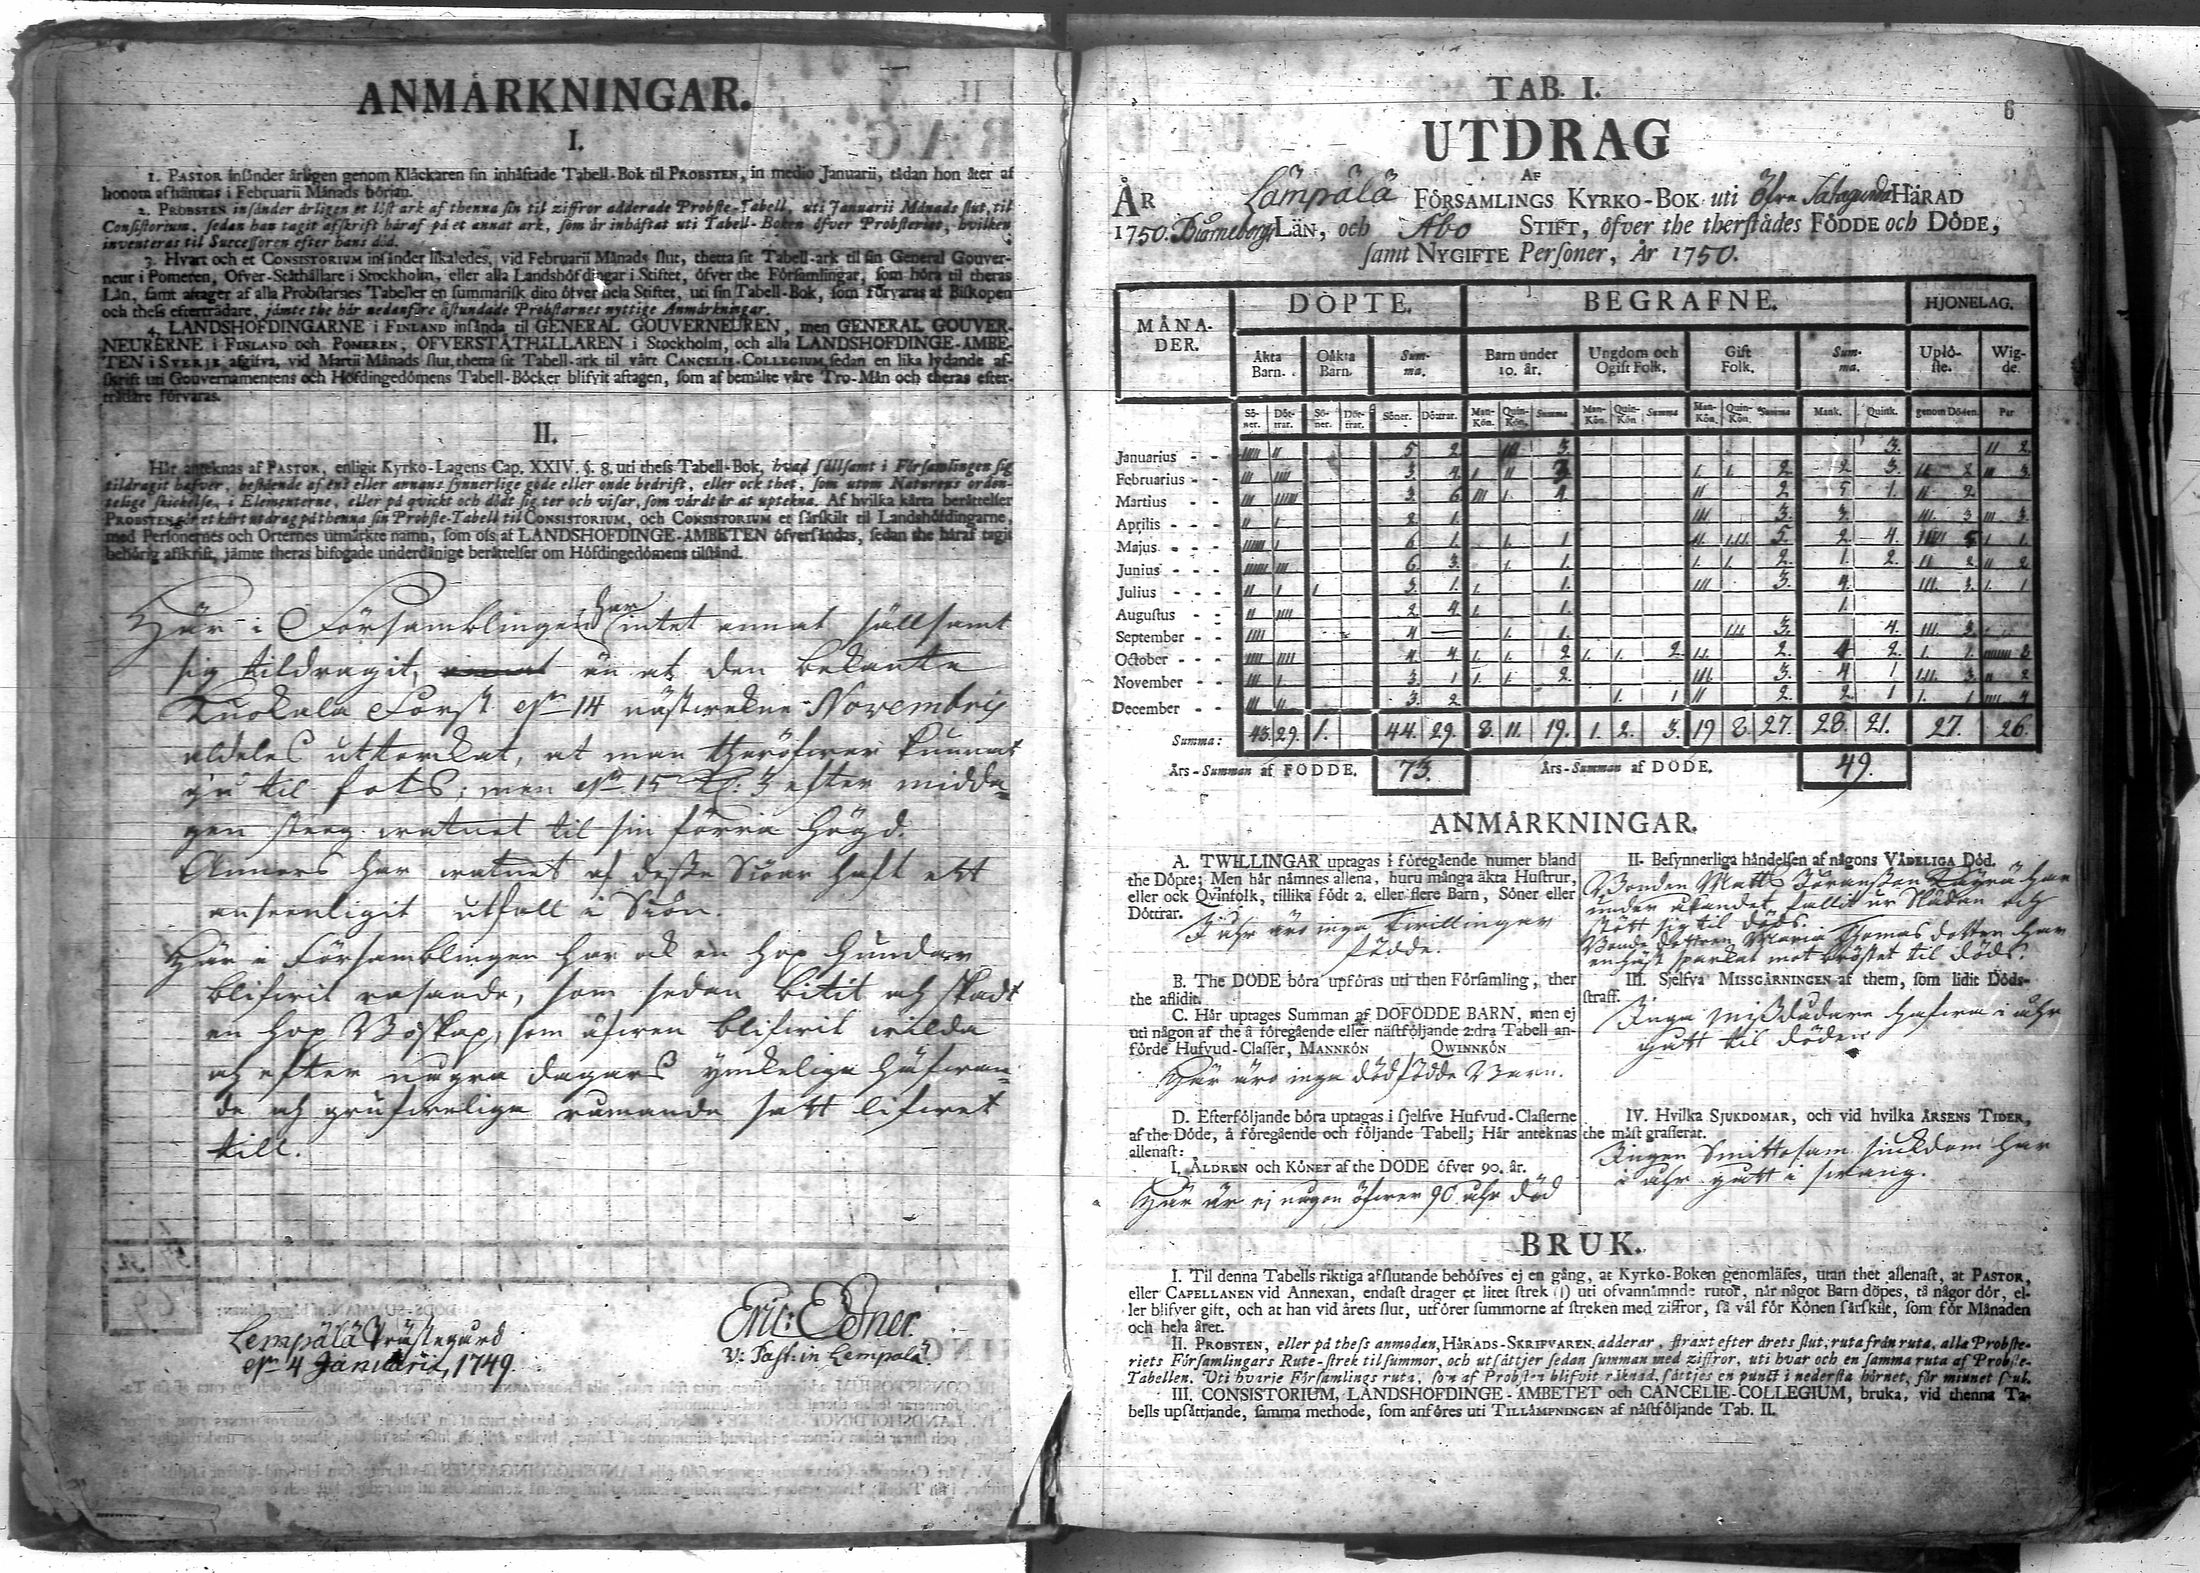 ANMÄRKNINGAR.
I.
1. PASTOR insänder årligen genom Klåckaren sin inhäftade Tabell-Bok til PROBSTEN, in medio Januarii, tådan hon åter af
honom afhämtas i Februarii Månads början.
2. PROBSTEN insänder årligen et löst ark af thenna sin til ziffror adderade Probste-Tabell, uti Januarii Månads slut, til
Consistorium, sedan han tagit afskrift häraf på et annat ark, som är inhäftat uti Tabell-Boken öfver Probsteriet, hvilken
inventeras til Successoren efter hans död.
3. Hvart och et CONSISTORIUM insänder likaledes, vid Februarii Månads slut, thetta sit Tabell-ark til sin General Gouver-
neur i Pomeren, Öfver-Ståthållare i Stockholm, eller alla Landshöfdingar i Stiftet, öfver the Församlingar, som höra til theras
Län, samt aftager af alla Probstarnes Tabeller en summarisk dito öfver hela Stiftet, uti sin Tabell-Bok, som förvaras af Biskopen
och thess efterträdare, jämte the här nedanföre åstundade Probstarnes nyttige Anmärkningar.
4. LANDSHÖFDINGARNE i FINLAND insända til GENERAL GOUVERNEUREN, men GENERAL GOUVER-
NEURERNE i FINLAND och POMEREN, ÖFVERSTÅTHÅLLAREN i Stockholm, och alla LANDSHÖFDINGE-ÄMBE-
TEN i SVERJE afgifva, vid Martii Månads slut, thetta sit Tabell-ark til vårt CANCELIE-COLLEGIUM, sedan en lika lydande af-
skrift uti Gouvernamentens och Höfdingedömens Tabell-Böcker blifvit aftagen, som af bemälte våre Tro-Män och theras efter-
trädare förvaras.
II.
Här anteknas af PASTOR, enligit Kyrko-Lagens Cap. XXIV. §. 8, uti thess Tabell-Bok, hvad sällsamt i Församlingen sig
tildragit hafver, bestående af ens eller annans synnerlige gode eller onde bedrift, eller ock thet, som utom Naturens orden-
telige skickelse, i Elementerne, eller på qvickt och dödt sig ter och visar, som värdt är at uptekna. Af hvilka kårta berättelser
PROBSTEN gör et kårt utdrag på thenna sin Probste-Tabell til CONSISTORIUM, och CONSISTORIUM et särskilt til Landshöfdingarne,
med Personernes och Orternes utmärkte namn, som oss af LANDSHÖFDINGE-ÄMBETEN öfversändas, sedan the häraf tagit
behörig afskrift, jämte theras bifogade underdånige berättelser om Höfdingedömens tilstånd.
Här i Församblingen har intet annat sällsamt
sig tildragit, än at den bekante
Kuokala Forss d. 14 nästwekne Novembris
aldeles uttorckat, at man theröfwer kunnat
gå til fots; men d. 15 Kl: 3 efter midda=
gen steeg watnet til sin förra högd.
Annors har watnet af desse Siöar haft ett
anseenligit utfall i Siön.
Här i Församblingen har ock en hop hundar
blifwit rasande, som sedan bitit och skadt
en hop Boskap, som äfwen blifwit wilda
och efter några dagars ynkeliga
de och grufweliga råmande satt lifwet
till.
Lempälä Prästegård
d. 4 Januarii, 1749.
Eric: Edner.
V: Past: in Lempälä.
6
TAB. I.
UTDRAG
AF
ÅR Lämpälä FÖRSAMLINGS KYRKO-BOK uti Öfre Satagunda HÄRAD
1750. Biörneborgs LÄN, och Åbo STIFT, öfver the therstädes FÖDDE och DÖDE,
samt NYGIFTE Personer, År 1750.
MÅNA-DER. DÖPTE. BEGRAFNE. HJONELAG.
Äkta Barn. Oäkta Barn. Sum-ma. Barn under 10. år. Ungdom och Ogift Folk. Gift Folk. Sum-ma. Uplö-ste. Wig-de.
Sö-ner. Döt-trar. Sö-ner. Döt-trar. Söner. Döttrar. Man-Kön. Quin-Kön. Summa Man-Kön. Quin-Kön Summa Man-Kön. Quin-Kön. Summa Mank. Quink. genom Döden. Par.
Januarius - - 5 2. III 3. 3. II 2.
Februarius - - 3 4. I II 3 I. I. 2. 2. 3. II 2. III 3.
Martius - - - 3. 6. III I. 4. II 2 5 1. II 2.
Aprilis - - - II I 2 1. III 3. 3. III. 3 III 3.
Majus - - - 6 1. I. 1 II I.II. 5. 2. 4. IIIII 5 I. 1.
Junius - - - 6. 3. I. 1. I. I. 2. 1. 2. II 2 II 2
Julius - - - II I I 3. 1. I. 1. III 3. 4. III. 3. I. 1
Augustus - - II IIII 2 4. I. 1. 1.
September - - IIII 4 — I. 1. III 3. 4. III. 3.
October - - - IIII IIII 4. 4. I. I. 2 I. I. 2. II. 2. 4 2. I. 1.
November - - III I 3. 1 I. I. 2. III. 3. 4 1 I.II. 3. II 2
December - - III II 3. 2. I. 1 II 2 2. 1 I. 1 IIII 4
Summa: 43. 29. 1. 44. 29. 8. 11. 19. 1. 2. 3. 19 8. 27. 28. 21. 27. 26.
Års-Summan af FÖDDE. 73. Års-Summan af DÖDE. 49.
ANMÄRKNINGAR.
A. TWILLINGAR uptagas i föregående numer bland
the Döpte; Men här nämnes allena, huru många äkta Hustrur,
eller ock Qvinfolk, tillika födt 2. eller flere Barn, Söner eller
Döttrar.
I åhr äro inga Twillingar
födde.
B. The DÖDE böra upföras uti then Församling, ther
the aflidit.
C. Här uptages Summan af DÖFÖDDE BARN, men ej
uti någon af the å föregående eller nästföljande 2:dra Tabell an-
förde Hufvud-Classer, MANNKÖN QWINNKÖN
Här äro inga dödfödde Barn.
D. Efterföljande böra uptagas i sjelfve Hufvud-Classerne
af the Döde, å föregående och följande Tabell; Här anteknas
allenast:
I. ÅLDREN och KÖNET af the DÖDE öfver 90. år.
Här är ej någon öfwer 90 åhr död
II. Besynnerliga händelsen af någons VÅDELIGA Död.
Bonden Matts Jöransson har
under åkandet fallit ur Slädan och
stött sig til döds.
Bonde dottren Maria Thomas dotter har
en häst sparkat mot bröstet til döds.
III. Sjelfva MISSGÄRNINGEN af them, som lidit Döds-
straff.
Inga missdådare hafwa i åhr
gått til döden
IV. Hvilka SJUKDOMAR, och vid hvilka ÅRSENS TIDER,
the mäst grasserat.
Ingen Smittosam siuckdom har
i åhr gått i swang.
BRUK.
I. Til denna Tabells riktiga afslutande behöfves ej en gång, at Kyrko-Boken genomläses, utan thet allenast, at PASTOR,
eller CAPELLANEN vid Annexan, endast drager et litet strek (I) uti ofvannämnde rutor, när något Barn döpes, tå någor dör, el-
ler blifver gift, och at han vid årets slut, utförer summorne af streken med ziffror, så väl för Könen särskilt, som för Månaden
och hela året.
II. PROBSTEN, eller på thess anmodan, HÄRADS-SKRIFVAREN, adderar, straxt efter årets slut, ruta från ruta, alla Probste-
riets Församlingars Rute-strek til summor, och utsättjer sedan summan med ziffror, uti hvar och en samma ruta af Probste-
Tabellen. Uti hvarje Församlings ruta, som af Probsten blifvit räknad, sättjes en punct i nedersta hörnet, för minnet skul.
III. CONSISTORIUM, LANDSHÖFDINGE-ÄMBETET och CANCELIE-COLLEGIUM, bruka, vid thenna Ta-
bells upsättjande, samma methode, som anföres uti TILLÄMPNINGEN af nästföljande Tab. II.